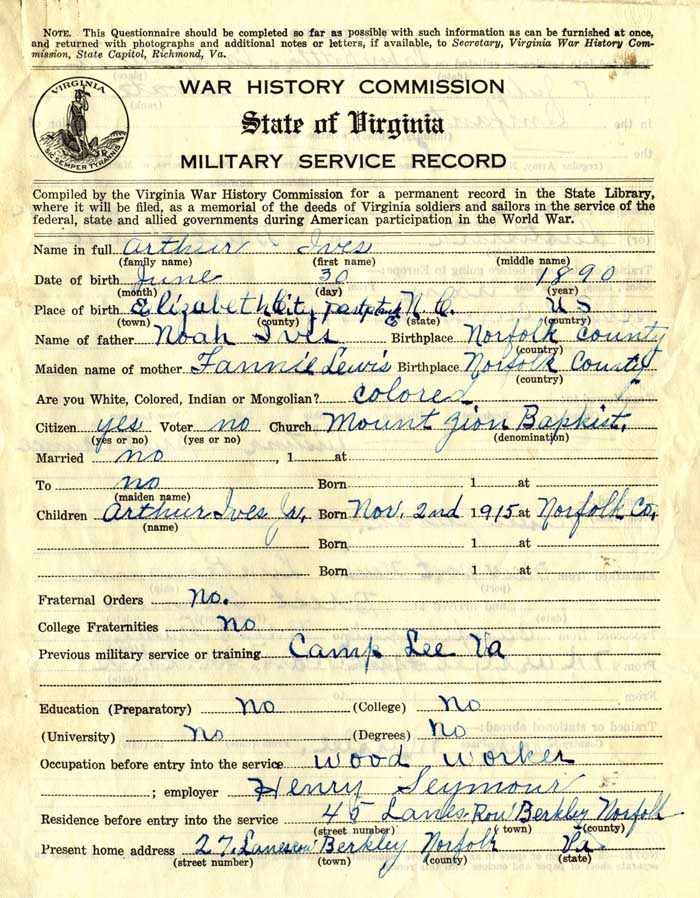 NOTE. This Questionnaire should be completed so far as possible with such information as can be furnished at once,
and returned with photographs and additional notes or letters, if available, to Secretary, Virginia War History Com-
mission, State Capitol, Richmond, Va.
VIRGINIA
SIC SEMPER TYRANNIS
WAR HISTORY COMMISSION
State of Virginia
MILITARY SERVICE RECORD
Compiled by the Virginia War History Commission for a permanent record in the State Library,
where it will be filed, as a memorial of the deeds of Virginia soldiers and sailors in the service of the
federal, state and allied governments during American participation in the World War.
Name in full Arthur Ives
(family name) (first name) (middle name)
Date of birth June 30 1890
(month) (day) (year)
Place of birth Elizabeth City, N.C. US
(town) (county) (state) (country)
Name of father Noah Ives Birthplace Norfolk County
(country)
Maiden name of mother Fannie Lewis Birthplace Norfolk County
(country)
Are you White, Colored, Indian or Mongolian? colored
Citizen yes Voter no Church Mount Zion Baptist.
(yes or no) (yes or no) (denomination)
Married no , 1 at
To no Born 1 at
(maiden name)
Children Arthur Ives Jr. Born Nov. 2nd 1915 at Norfolk Co.
(name)
Born 1 at
Born 1 at
Fraternal Orders No.
College Fraternities No
Previous military service or training Camp Lee Va
Education (Preparatory) No (College) No
(University) No (Degrees) No
Occupation before entry into the service Wood Worker
; employer Henry Seymour
Residence before entry into the service 45 Lanes Row Berkley Norfolk
(street number) (town) (county)
Present home address 27. Lanesrow Berkley Norfolk Va
(street number) (town) (county) (state)